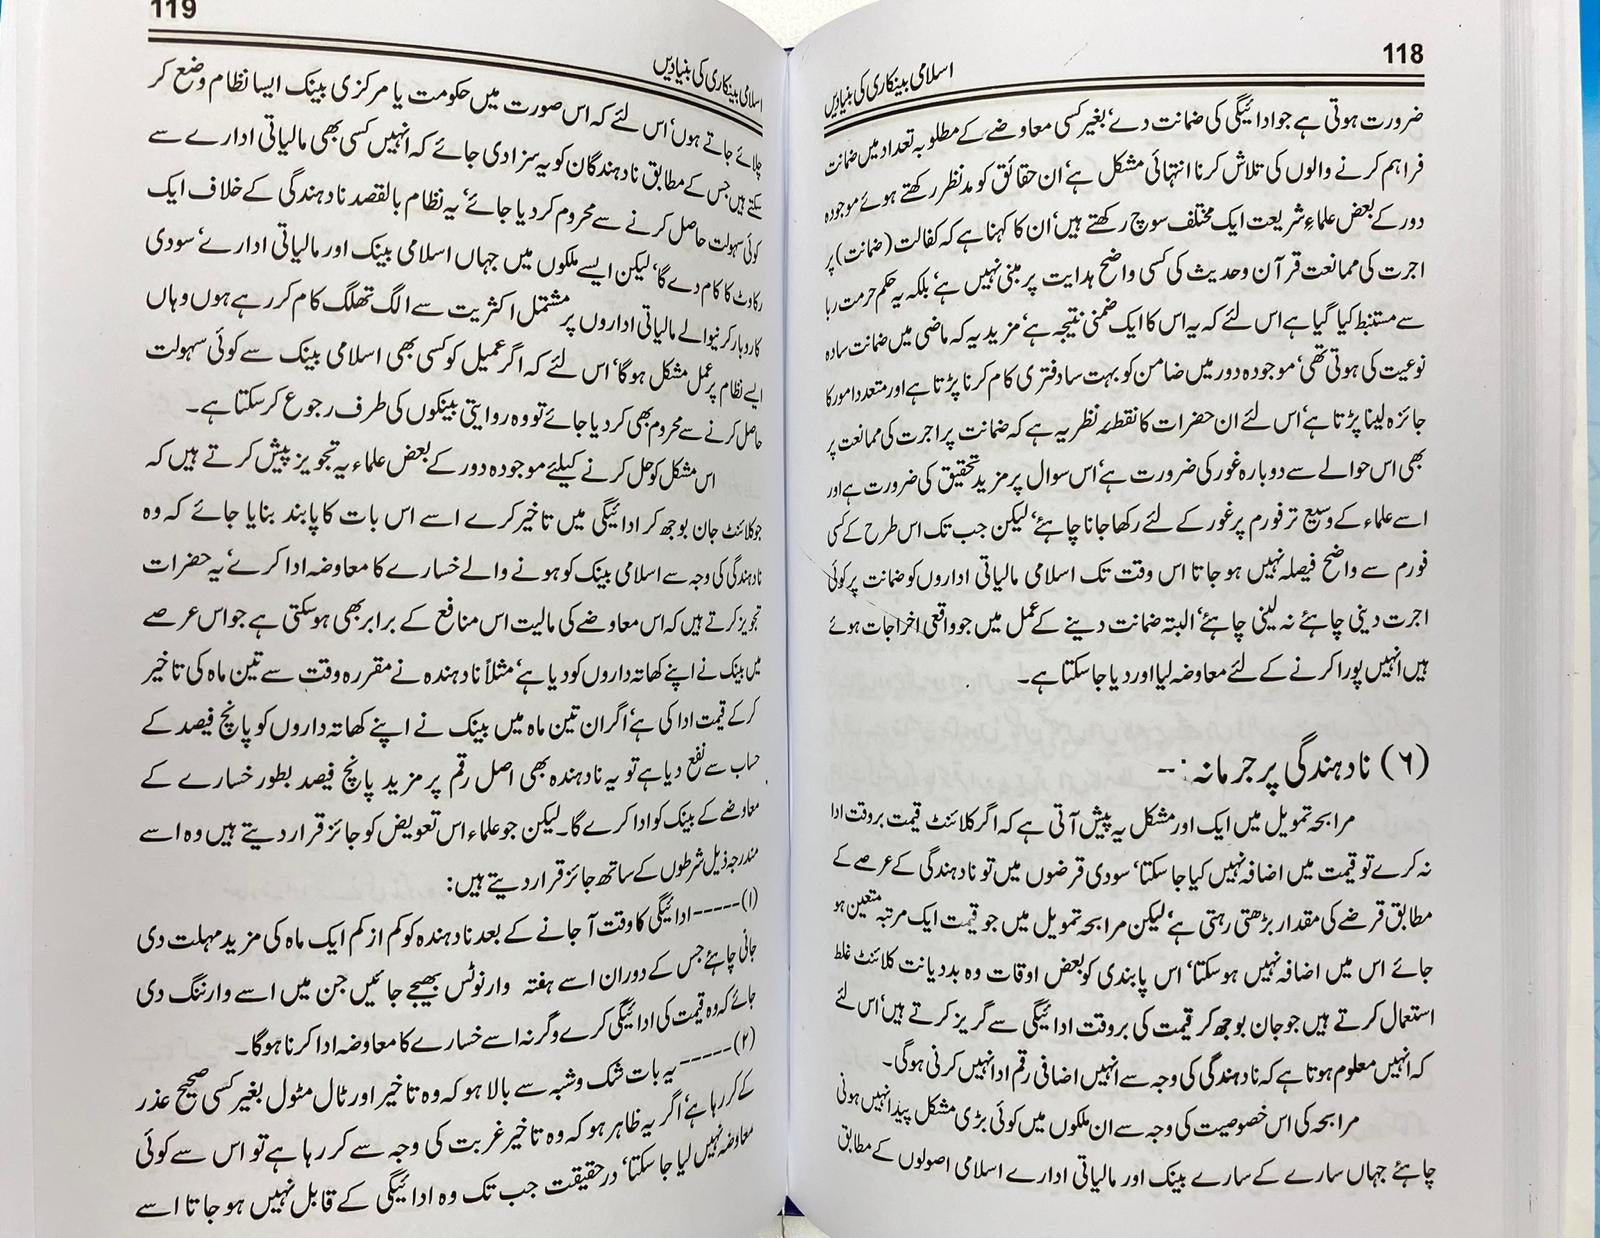 118
اسلامی بینکاری کی بنیادیں
ضرورت ہوتی ہے جو ادائیگی کی ضمانت دے، بغیر کسی معاوضے کے مطلوبہ تعداد میں ضمانت
فراہم کرنے والوں کی تلاش کرنا انتہائی مشکل ہے، ان حقائق کو مدنظر رکھتے ہوئے موجودہ
دور کے بعض علماء شریعت ایک مختلف سوچ رکھتے ہیں، ان کا کہنا ہے کہ کفالت (ضمانت) پر
اجرت کی ممانعت قرآن وحدیث کی کسی واضح ہدایت پر مبنی نہیں ہے، بلکہ یہ حکم حرمت ربا
سے مستنبط کیا گیا ہے اس لئے کہ یہ اس کا ایک ضمنی نتیجہ ہے، مزید یہ کہ ماضی میں ضمانت سادہ
نوعیت کی ہوتی تھی، موجودہ دور میں ضامن کو بہت سا دفتری کام کرنا پڑتا ہے اور متعدد امور کا
جائزہ لینا پڑتا ہے، اس لئے ان حضرات کا نقطۂ نظر یہ ہے کہ ضمانت پر اجرت کی ممانعت پر
بھی اس حوالے سے دوبارہ غور کی ضرورت ہے، اس سوال پر مزید تحقیق کی ضرورت ہے اور
اسے علماء کے وسیع تر فورم پر غور کے لئے رکھا جانا چاہئے، لیکن جب تک اس طرح کے کسی
فورم سے واضح فیصلہ نہیں ہو جاتا اس وقت تک اسلامی مالیاتی اداروں کو ضمانت پر کوئی
اجرت دینی چاہئے نہ لینی چاہئے، البتہ ضمانت دینے کے عمل میں جو واقعی اخراجات ہوئے
ہیں انہیں پورا کرنے کے لئے معاوضہ لیا اور دیا جا سکتا ہے۔
(۶) نادہندگی پر جرمانہ:--
مرابحہ تمویل میں ایک اور مشکل یہ پیش آتی ہے کہ اگر کلائنٹ قیمت بروقت ادا
نہ کرے تو قیمت میں اضافہ نہیں کیا جا سکتا، سودی قرضوں میں تو نادہندگی کے عرصے کے
مطابق قرضے کی مقدار بڑھتی رہتی ہے، لیکن مرابحہ تمویل میں جو قیمت ایک مرتبہ متعین ہو
جائے اس میں اضافہ نہیں ہو سکتا، اس پابندی کو بعض اوقات وہ بددیانت کلائنٹ غلط
استعمال کرتے ہیں جو جان بوجھ کر قیمت کی بروقت ادائیگی سے گریز کرتے ہیں، اس لئے
کہ انہیں معلوم ہوتا ہے کہ نادہندگی کی وجہ سے انہیں اضافی رقم ادا نہیں کرنی ہوگی۔
مرابحہ کی اس خصوصیت کی وجہ سے ان ملکوں میں کوئی بڑی مشکل پیدا نہیں ہونی
چاہئے جہاں سارے کے سارے بینک اور مالیاتی ادارے اسلامی اصولوں کے مطابق
119
اسلامی بینکاری کی بنیادیں
چلائے جاتے ہوں، اس لئے کہ اس صورت میں حکومت یا مرکزی بینک ایسا نظام وضع کر
سکتے ہیں جس کے مطابق نادہندگان کو یہ سزا دی جائے کہ انہیں کسی بھی مالیاتی ادارے سے
کوئی سہولت حاصل کرنے سے محروم کر دیا جائے، یہ نظام بالقصد نادہندگی کے خلاف ایک
رکاوٹ کا کام دے گا، لیکن ایسے ملکوں میں جہاں اسلامی بینک اور مالیاتی ادارے، سودی
کاروبار کرنیوالے مالیاتی اداروں پر مشتمل اکثریت سے الگ تھلگ کام کر رہے ہوں وہاں
ایسے نظام پر عمل مشکل ہوگا، اس لئے کہ اگر عمیل کو کسی بھی اسلامی بینک سے کوئی سہولت
حاصل کرنے سے محروم بھی کر دیا جائے تو وہ روایتی بینکوں کی طرف رجوع کر سکتا ہے۔
اس مشکل کو حل کرنے کیلئے موجودہ دور کے بعض علماء یہ تجویز پیش کرتے ہیں کہ
جو کلائنٹ جان بوجھ کر ادائیگی میں تاخیر کرے اسے اس بات کا پابند بنایا جائے کہ وہ
نادہندگی کی وجہ سے اسلامی بینک کو ہونے والے خسارے کا معاوضہ ادا کرے، یہ حضرات
تجویز کرتے ہیں کہ اس معاوضے کی مالیت اس منافع کے برابر بھی ہو سکتی ہے جو اس عرصے
میں بینک نے اپنے کھاتہ داروں کو دیا ہے، مثلاً نادہندہ نے مقررہ وقت سے تین ماہ کی تاخیر
کر کے قیمت ادا کی ہے، اگر ان تین ماہ میں بینک نے اپنے کھاتہ داروں کو پانچ فیصد کے
حساب سے نفع دیا ہے تو یہ نادہندہ بھی اصل رقم پر مزید پانچ فیصد بطور خسارے کے
معاوضے کے بینک کو ادا کرے گا۔ لیکن جو علماء اس تعویض کو جائز قرار دیتے ہیں وہ اسے
مندرجہ ذیل شرطوں کے ساتھ جائز قرار دیتے ہیں:
(۱)-----ادائیگی کا وقت آ جانے کے بعد نادہندہ کو کم از کم ایک ماہ کی مزید مہلت دی
جانی چاہئے جس کے دوران اسے ہفتہ وار نوٹس بھیجے جائیں جن میں اسے وارننگ دی
جائے کہ وہ قیمت کی ادائیگی کرے وگرنہ اسے خسارے کا معاوضہ ادا کرنا ہوگا۔
(۲)-----یہ بات شک وشبہ سے بالا ہو کہ وہ تاخیر اور ٹال مٹول بغیر کسی صحیح عذر
کے کر رہا ہے، اگر یہ ظاہر ہو کہ وہ تاخیر غربت کی وجہ سے کر رہا ہے تو اس سے کوئی
معاوضہ نہیں لیا جا سکتا، درحقیقت جب تک وہ ادائیگی کے قابل نہیں ہو جاتا اسے